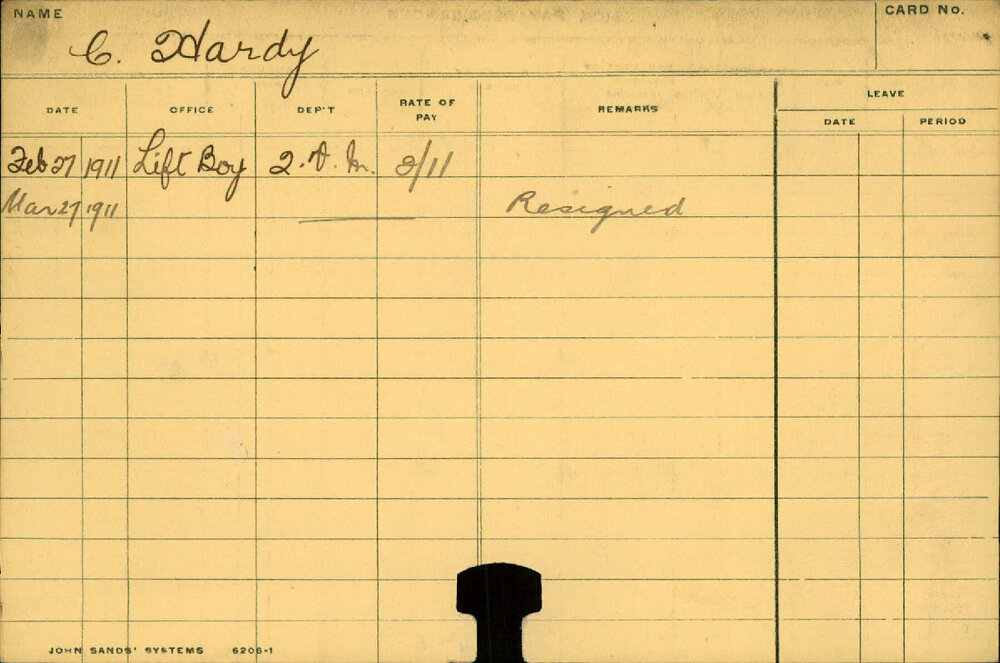 NAME
C. Hardy
CARD No.
DATE OFFICE DEP'T RATE OF PAY REMARKS LEAVE
DATE PERIOD
Feb 27 1911 Lift Boy 2. V. M. 3/11
Mar 27 1911 Resigned
JOHN SANDS' SYSTEMS 6206-1